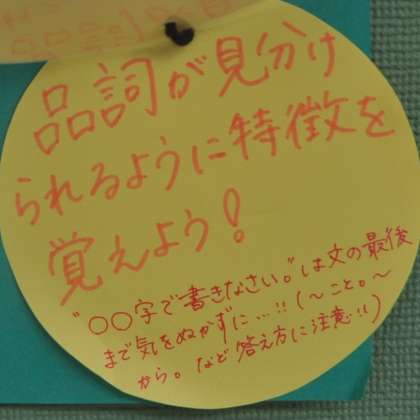 品詞が見分け
られるように特徴を
覚えよう！
"〇〇字で書きなさい。"は文の最後
まで気をぬかずに…!!（～こと。～
から。など答え方に注意!!）